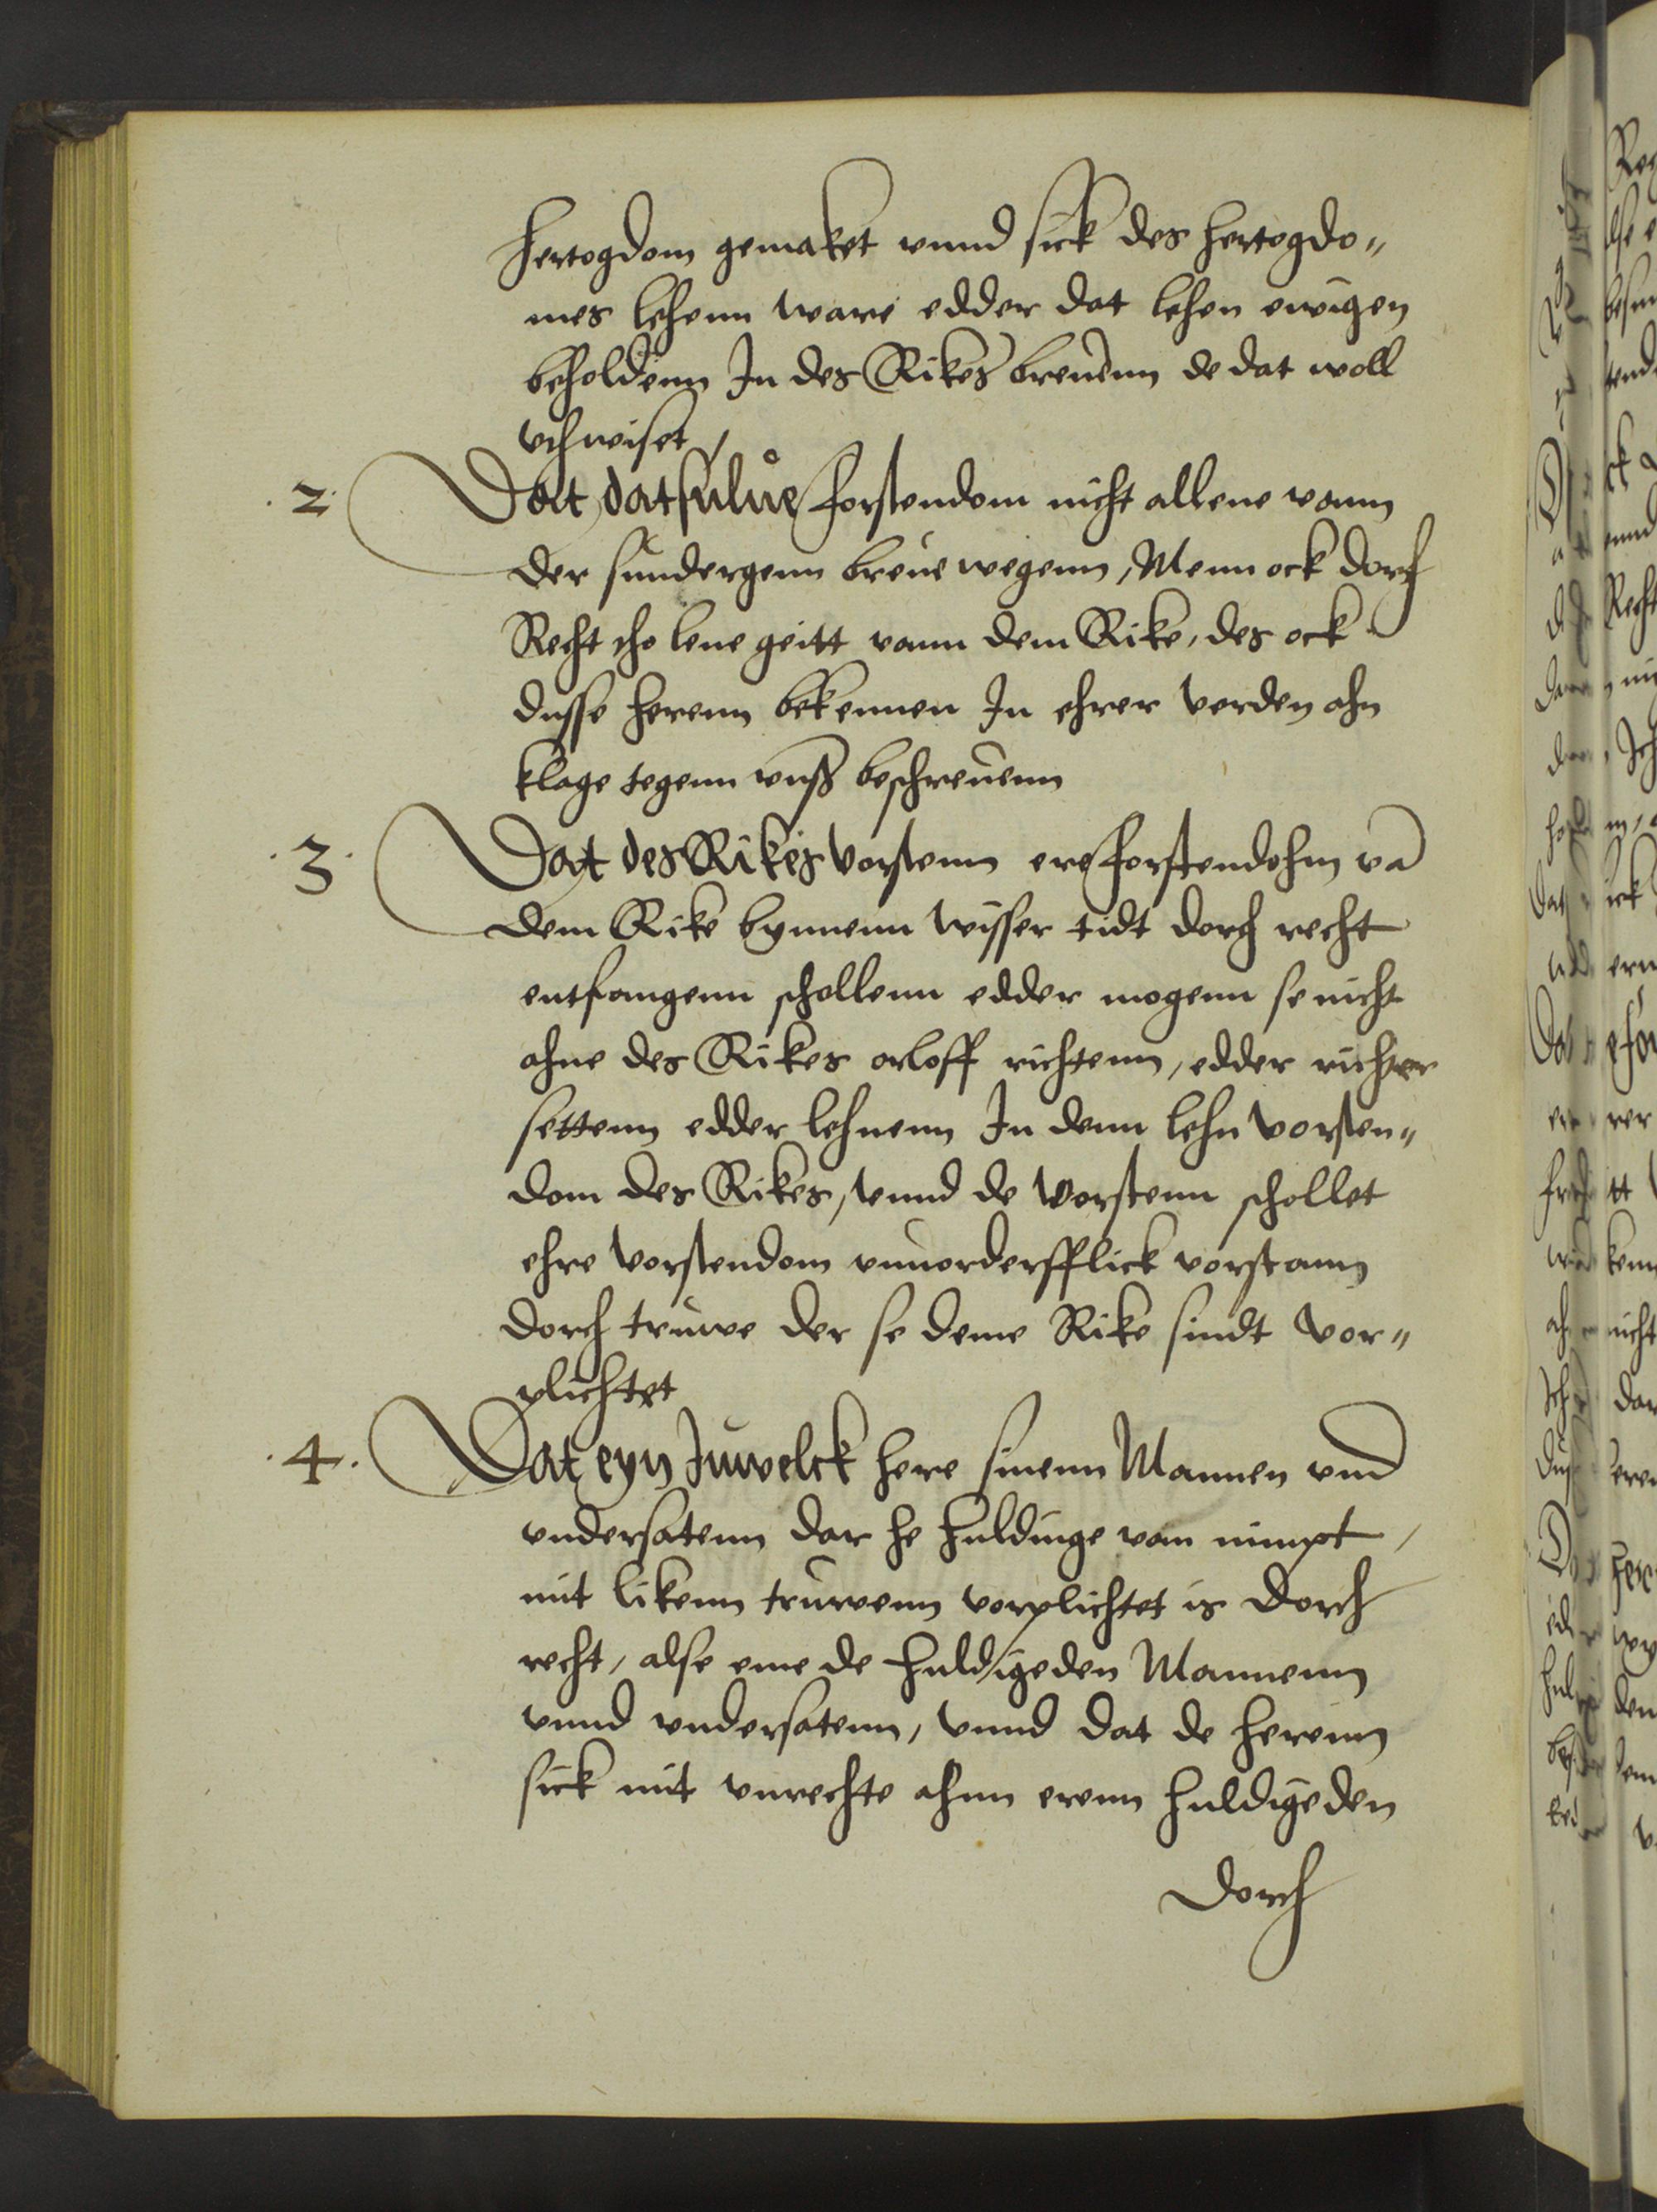 hertogdom gemaket vnnd sick des hertogdo„
mes lehenn ware edder dat lehen ewigen
beholdenn In des Rikes breuenn de dat woll
vthwiset
.2. Dat datsulue forstendom nicht allene vann
der sundergenn breue wegenn, Menn ock dorch
Recht tho lene geitt vann dem Rike, des ock
dusse herenn bekennen In ehrer verden ahn
klage tegenn vnß beschreuenn
.3. Dat des Rikes vorstenn ere forstendohm vā
dem Rike bynnenn wisser tidt dorch recht
entfangenn schollenn edder mogenn se nicht
ahne des Rikes orloff richtenn, edder richter
settenn edder lehnenn In denn lehn vorsten„
dom des Rikes, vnnd de vorstenn schollet
ehre vorstendom vnuorderfflick vorstann
dorch truwe der se deme Rike sindt vor„
plichtet
.4. Dat eyn Juwelck here sinenn Mannen vnd
vndersatenn dar he huldinge van nimpt,
mit likenn truwenn vorplichtet is dorch
recht, alse eme de huldigeden Mannenn
vnnd vndersatenn, vnnd dat de herenn
sick mit vnrechte ahnn erenn huldigeden
dorch